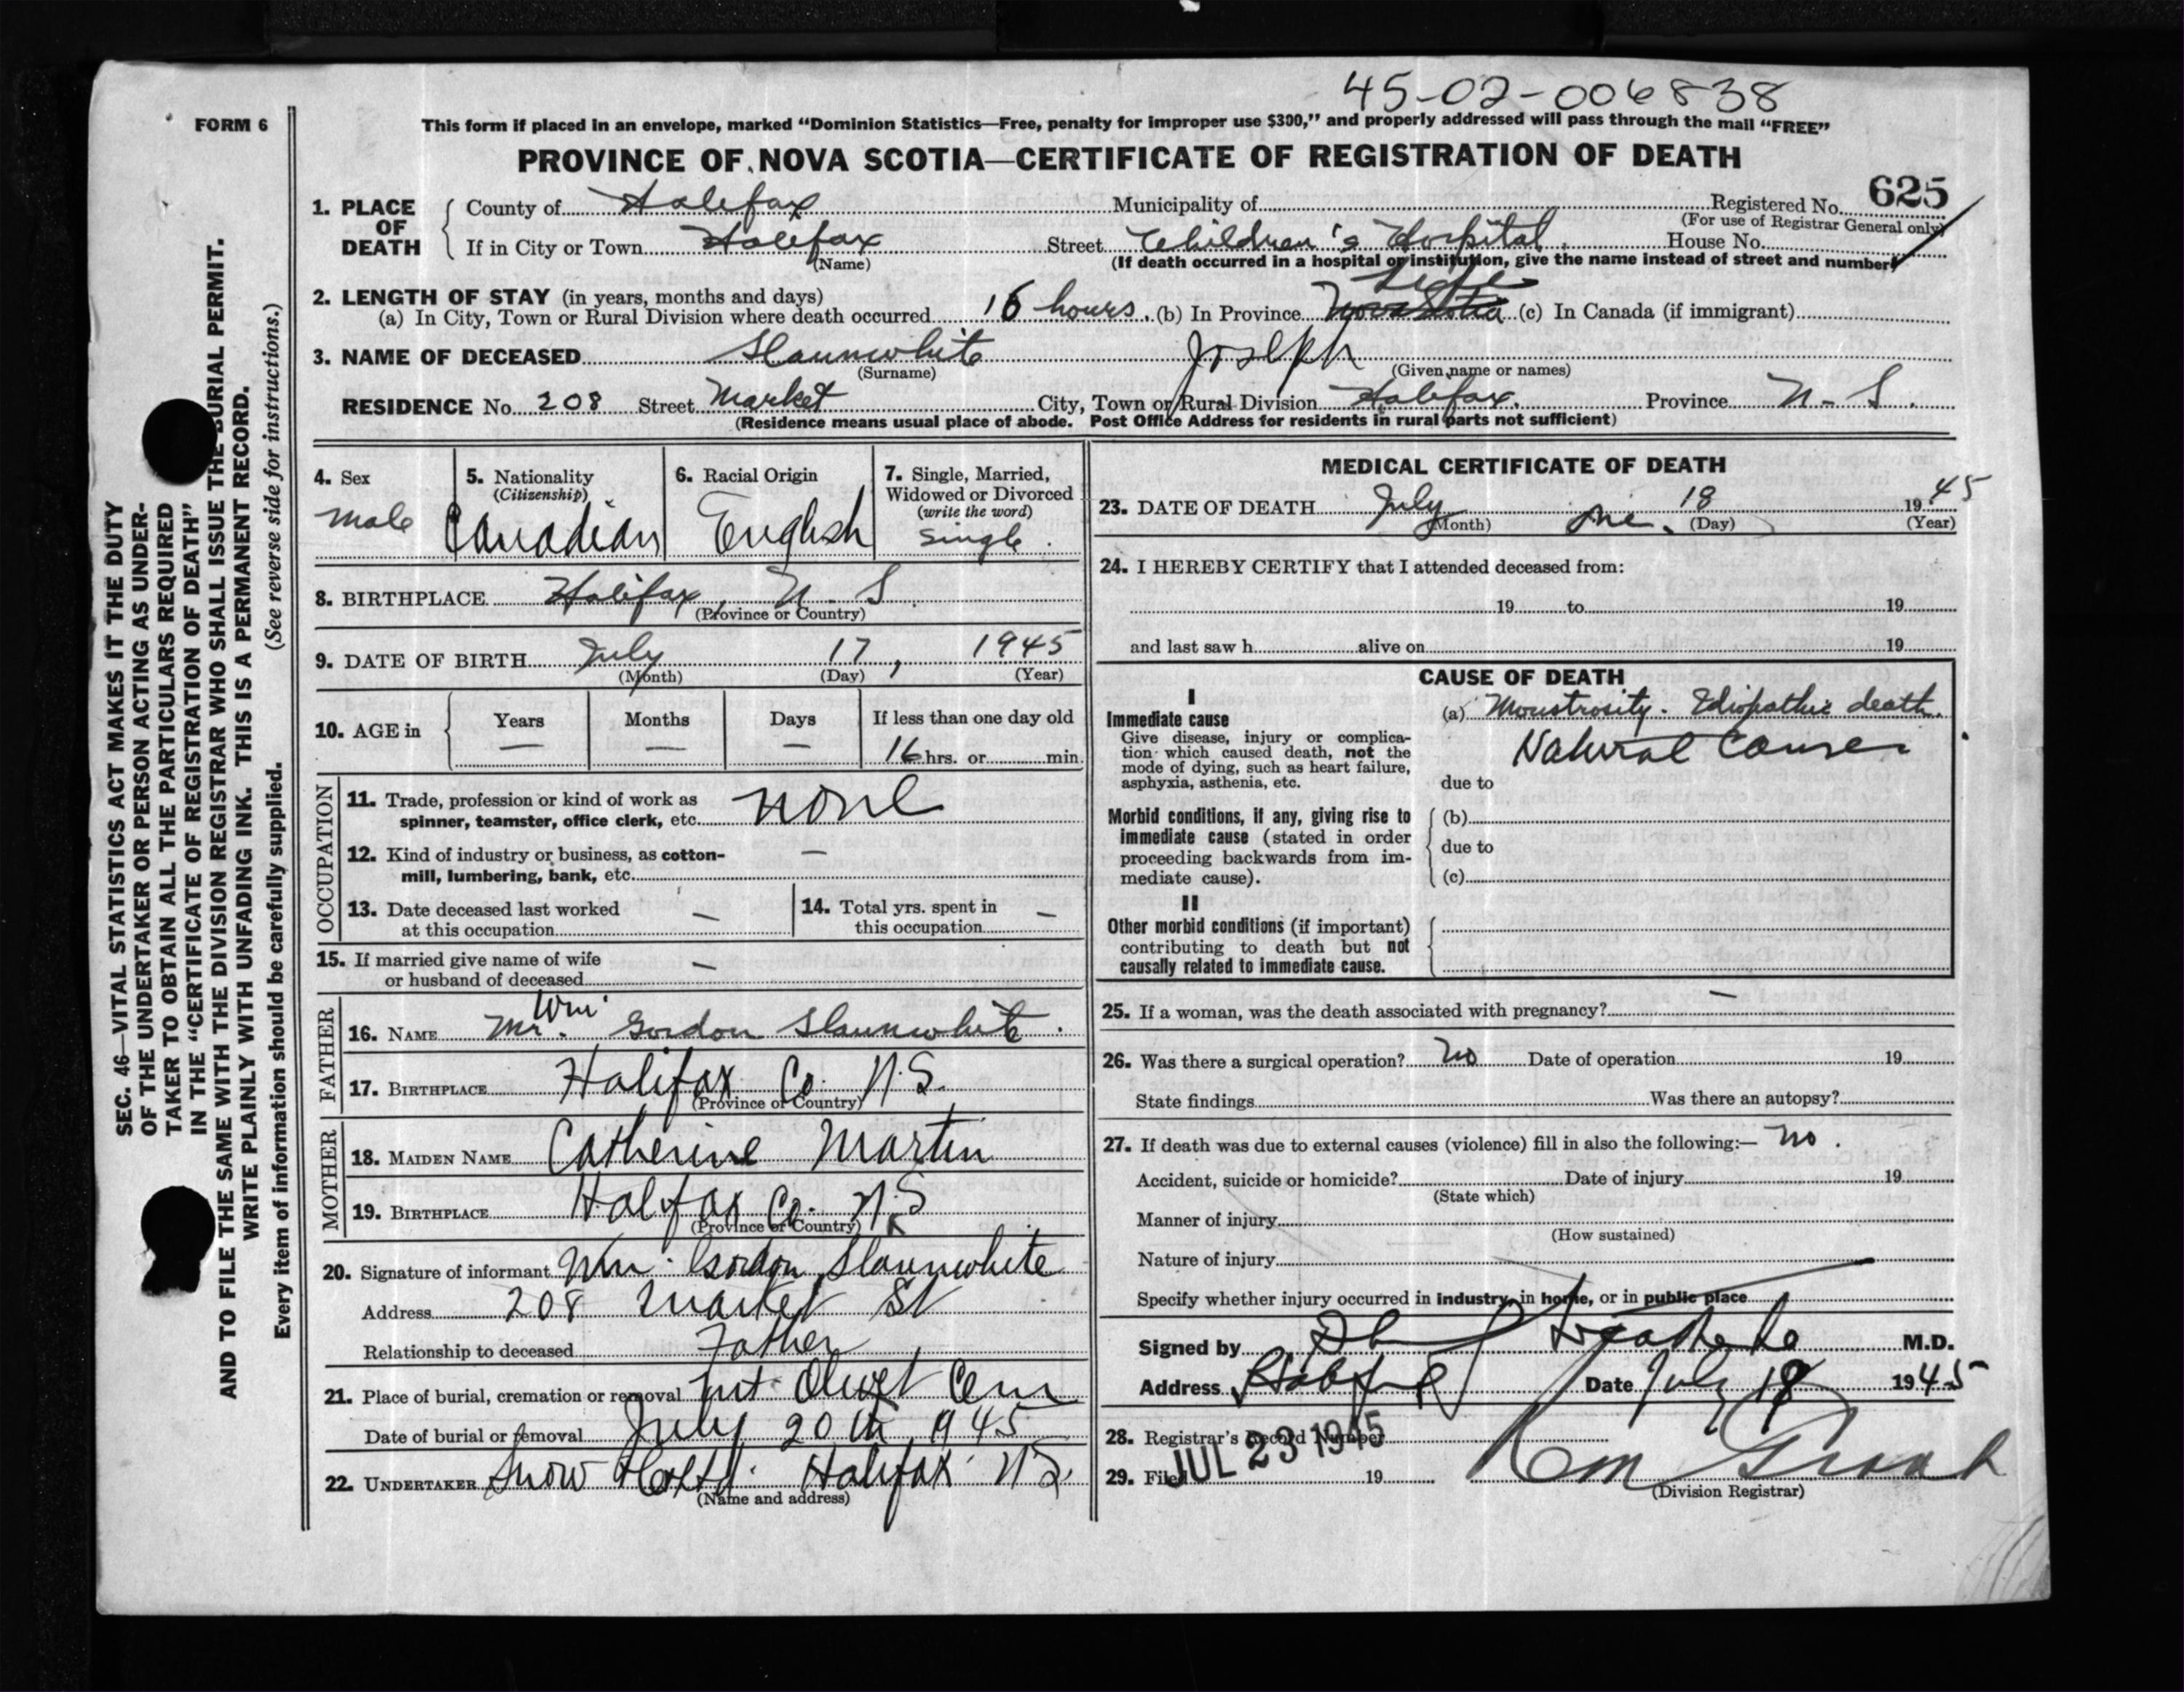 45-02-006838
FORM 6
This form if placed in an envelope, marked “Dominion Statistics—Free, penalty for improper use $300,” and properly addressed will pass through the mail “FREE”
PROVINCE OF NOVA SCOTIA—CERTIFICATE OF REGISTRATION OF DEATH
1. PLACE OF DEATH
County of Halifax Municipality of Registered No. 625
(For use of Registrar General only)
If in City or Town Halifax Street Children's Hospital House No.
(Name) (If death occurred in a hospital or institution, give the name instead of street and number)
2. LENGTH OF STAY (in years, months and days) Life
(a) In City, Town or Rural Division where death occurred 16 hours. (b) In Province Nova Scotia (c) In Canada (if immigrant)
3. NAME OF DECEASED Slaunwhite Joseph
(Surname) (Given name or names)
RESIDENCE No. 208 Street Market City, Town or Rural Division Halifax. Province N-S.
(Residence means usual place of abode. Post Office Address for residents in rural parts not sufficient)
4. Sex
male
5. Nationality
(Citizenship)
Canadian
6. Racial Origin
English
7. Single, Married,
Widowed or Divorced
(write the word)
single.
8. BIRTHPLACE Halifax, N. S.
(Province or Country)
9. DATE OF BIRTH July 17, 1945
(Month) (Day) (Year)
10. AGE in
Years Months Days If less than one day old
— — — 16 hrs. or min.
OCCUPATION
11. Trade, profession or kind of work as
spinner, teamster, office clerk, etc. none
12. Kind of industry or business, as cotton- —
mill, lumbering, bank, etc.
13. Date deceased last worked
at this occupation —
14. Total yrs. spent in
this occupation —
15. If married give name of wife
or husband of deceased —
FATHER
Wm
16. NAME Mr. Gordon Slaunwhite.
17. BIRTHPLACE Halifax Co. N.S.
(Province or Country)
MOTHER
18. MAIDEN NAME Catherine Martin
19. BIRTHPLACE Halifax Co. N.S
(Province or Country)
20. Signature of informant Wm. Gordon Slaunwhite
Address 208 Market St
Relationship to deceased Father
21. Place of burial, cremation or removal Mt. Olivet Cem
Date of burial or removal July 20th 1945
22. UNDERTAKER Snow Halifax N.S.
(Name and address)
MEDICAL CERTIFICATE OF DEATH
23. DATE OF DEATH July 18 1945
(Month) (Day) (Year)
24. I HEREBY CERTIFY that I attended deceased from:
19 to 19
and last saw h alive on 19
CAUSE OF DEATH
I
Immediate cause
Give disease, injury or complica-
tion which caused death, not the
mode of dying, such as heart failure,
asphyxia, asthenia, etc.
(a) Monstrosity. Idiopathic death.
Natural Causes
due to
Morbid conditions, if any, giving rise to
immediate cause (stated in order
proceeding backwards from im-
mediate cause).
(b)
due to
(c)
II
Other morbid conditions (if important)
contributing to death but not
causally related to immediate cause.
25. If a woman, was the death associated with pregnancy? —
26. Was there a surgical operation? No Date of operation 19
State findings Was there an autopsy?
27. If death was due to external causes (violence) fill in also the following:— No.
Accident, suicide or homicide? Date of injury 19
(State which)
Manner of injury
(How sustained)
Nature of injury
Specify whether injury occurred in industry, in home, or in public place
Signed by M.D.
Address Halifax Date July 18 1945
28. Registrar's Record Number
29. Filed JUL 23 1945 19
(Division Registrar)
SEC. 46—VITAL STATISTICS ACT MAKES IT THE DUTY
OF THE UNDERTAKER OR PERSON ACTING AS UNDER-
TAKER TO OBTAIN ALL THE PARTICULARS REQUIRED
IN THE “CERTIFICATE OF REGISTRATION OF DEATH”
AND TO FILE THE SAME WITH THE DIVISION REGISTRAR WHO SHALL ISSUE THE BURIAL PERMIT.
WRITE PLAINLY WITH UNFADING INK. THIS IS A PERMANENT RECORD.
Every item of information should be carefully supplied. (See reverse side for instructions.)